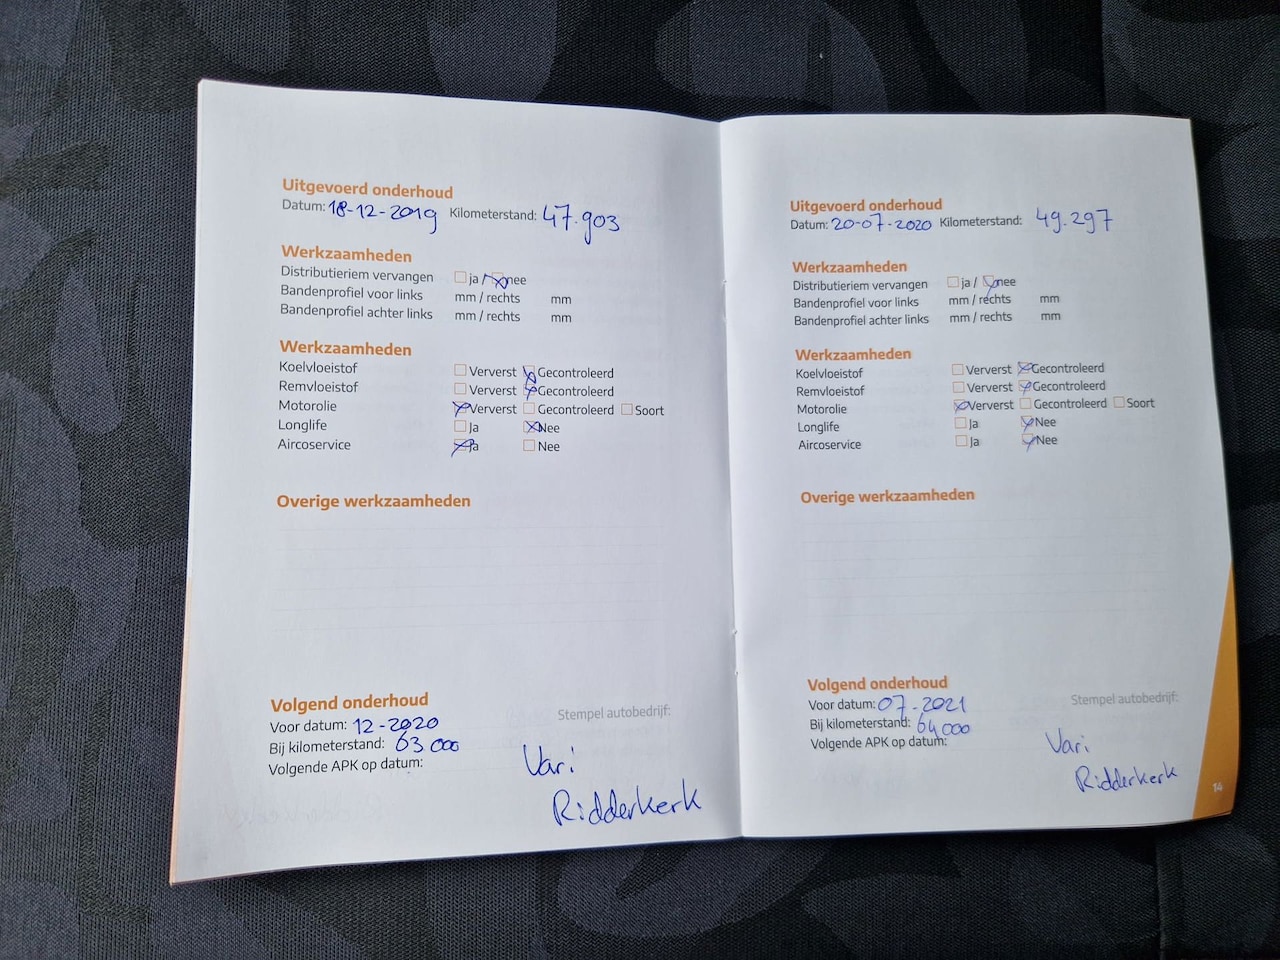 Uitgevoerd onderhoud
Datum: 18-12-2019 Kilometerstand: 47.903
Werkzaamheden
Distributieriem vervangen ja / nee
Bandenprofiel voor links mm / rechts mm
Bandenprofiel achter links mm / rechts mm
Werkzaamheden
Koelvloeistof Ververst Gecontroleerd
Remvloeistof Ververst Gecontroleerd
Motorolie Ververst Gecontroleerd Soort
Longlife Ja Nee
Aircoservice Ja Nee
Overige werkzaamheden
Volgend onderhoud
Voor datum: 12-2020
Bij kilometerstand: 63 000
Volgende APK op datum:
Stempel autobedrijf:
Vari
Ridderkerk
Uitgevoerd onderhoud
Datum: 20-07-2020 Kilometerstand: 49.297
Werkzaamheden
Distributieriem vervangen ja / nee
Bandenprofiel voor links mm / rechts mm
Bandenprofiel achter links mm / rechts mm
Werkzaamheden
Koelvloeistof Ververst Gecontroleerd
Remvloeistof Ververst Gecontroleerd
Motorolie Ververst Gecontroleerd Soort
Longlife Ja Nee
Aircoservice Ja Nee
Overige werkzaamheden
Volgend onderhoud
Voor datum: 07-2021
Bij kilometerstand: 64 000
Volgende APK op datum:
Stempel autobedrijf:
Vari
Ridderkerk
14